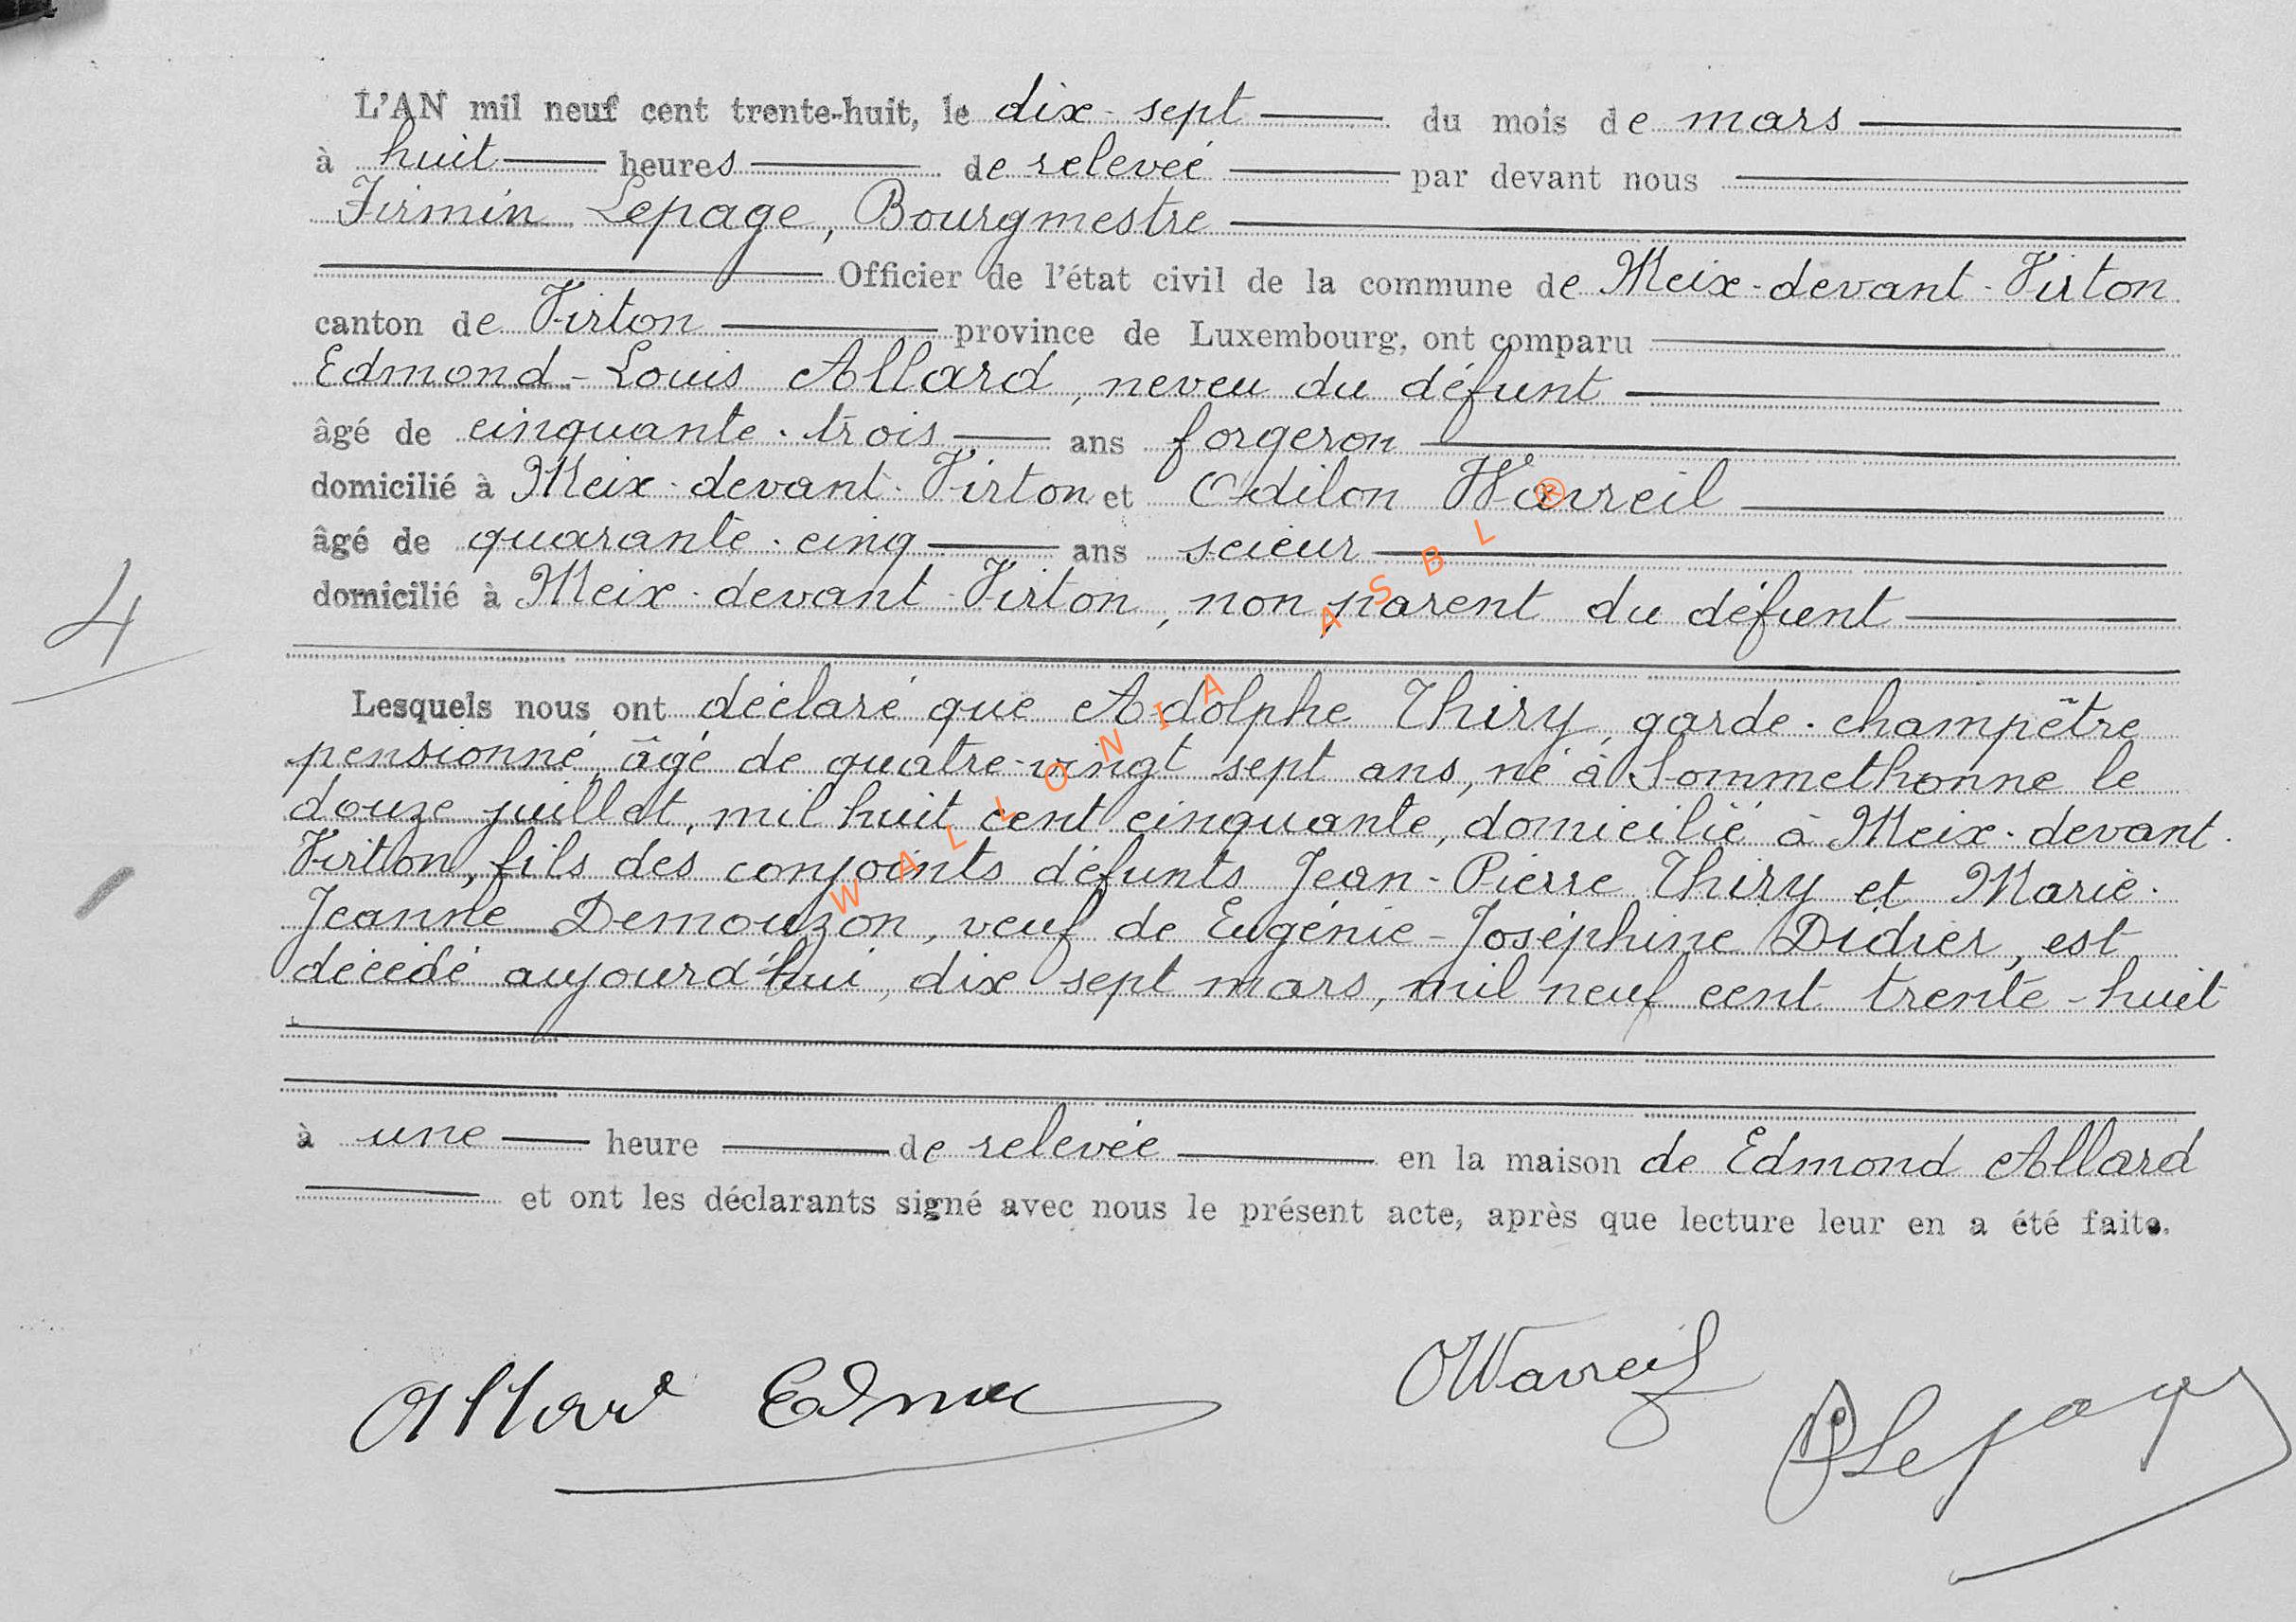 L'AN mil neuf cent trente-huit, le dix-sept du mois de mars
à huit heures de relevée par devant nous
Firmin Lepage, Bourgmestre
Officier de l'état civil de la commune de Meix-devant-Virton
canton de Virton province de Luxembourg, ont comparu
Edmond-Louis Allard, neveu du défunt
âgé de cinquante-trois ans forgeron
domicilié à Meix-devant-Virton et Odilon Wavreil
âgé de quarante-cinq ans scieur
domicilié à Meix-devant-Virton, non parent du défunt
4
Lesquels nous ont déclaré que Adolphe Thiry, garde-champêtre
pensionné, âgé de quatre-vingt sept ans, né à Sommethonne le
douze juillet, mil huit cent cinquante, domicilié à Meix-devant-
Virton, fils des conjoints défunts Jean-Pierre Thiry et Marie-
Jeanne Demouzon, veuf de Eugénie-Joséphine Didier, est
décédé aujourd'hui, dix sept mars, mil neuf cent trente-huit
à une heure de relevée en la maison de Edmond Allard
et ont les déclarants signé avec nous le présent acte, après que lecture leur en a été faite.
Allard Edm
OWavreil
Lepage
WALLONIA ASBL ®